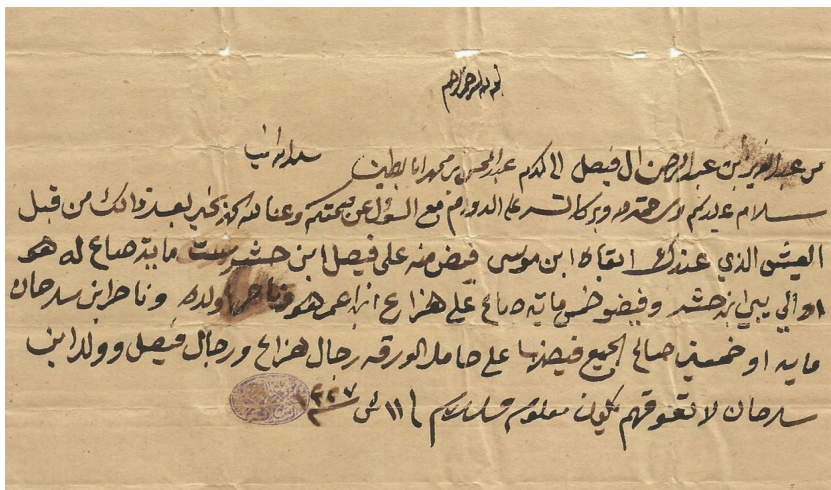 بسم الله الرحمن الرحيم
من عبدالعزيز ابن عبدالرحمن ال فيصل الى المكرم عبدالمحسن بن محمد ابابطين سلمه الله
سلام عليكم ورحمة الله وبركاته على الدوام مع السؤال عن صحتكم وعنا لله الحمد بخير بعد ذالك من قبل
العيش الذي عندك ابقاه ابن موسى فيض منه على فيصل ابن حشر ست ماية صاع له هو
ابن حشر وفيضو خمس مايه صاع على هزاع ابن عمر هو اولده وناصر ابن سرحان
مايه او خمسين صاع الجميع فيضها على حامل الورقه رجال هزاع ورجال فيصل وولد ابن
سرحان لا تعوقهم يكون معلوم والسلام ١١ ١٣٢٧